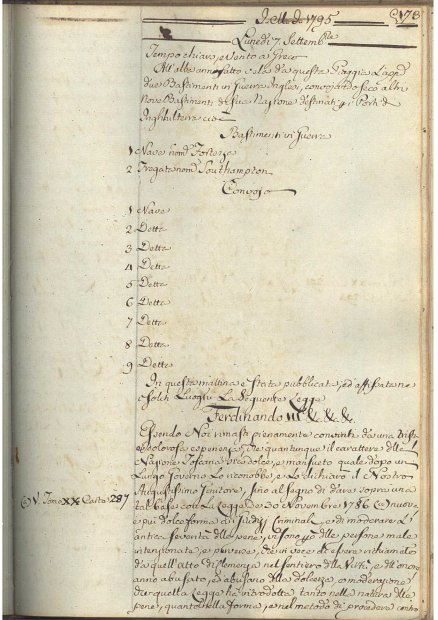 Dell' Ao. 1795
178
Lunedi 7. Settembre
Tempo chiaro, e Vento a Greco
All' alba anno fatto vela da questa Spiaggia L'app.
due Bastimenti in Guerra Inglesi, convojando seco altri
Nove Bastimenti di sua Nazione destinati p. i Porti d'
Inghilterra cioè
Bastimenti in Guerra
1 Nave nom. Fortezza
2 Fregata nom. Southampton
Convojo
1 Nave
2 Detta
3 Detta
4 Detta
5 Detta
6 Detta
7 Detta
8 Detta
9 Detta
In questa mattina è stata pubblicata, ed affissata ne
soliti Luoghi La Seguente Legge
Ferdinando III &. &. &.
Essendo Noi rimasti pienamente convinti da una trista
e dolorosa esperienza, che quantunque il carattere della
Nazione Toscana sia dolce, e mansueto quale dopo un
Lungo Governo Lo riconobbe, e Lo dichiarò il Nostro
Augustissimo Genitore, fino al segno di dare sopra una
V. Tomo XX Carta 287
tal base colla Legge de 30 Novembre 1786 Una nuova
e più dolce forma ai Giudizj Criminali, e di moderare L'
antica severità delle pene, vi sono delle persone male
intenzionate, e perverse, che in vece di essere richiamate
da quell' atto di Clemenza nel sentiero della Virtù, e dell' onore
anno abusato, ed abusano della dolcezza, e moderazione
da quella Legge introdotta, tanto nella natura delle
pene, quanto nella forma, e nel metodo di procedere contro